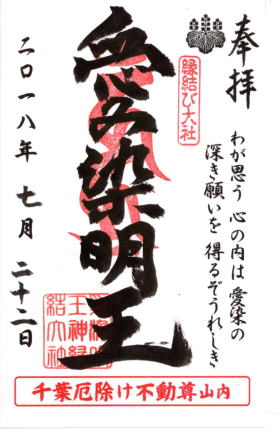 奉拝
わが思う 心の内は 愛染の
深き願いを 得るぞうれしき
縁結び大社
愛染明王
二〇一八年 七月 二十二日
千葉厄除け不動尊山内